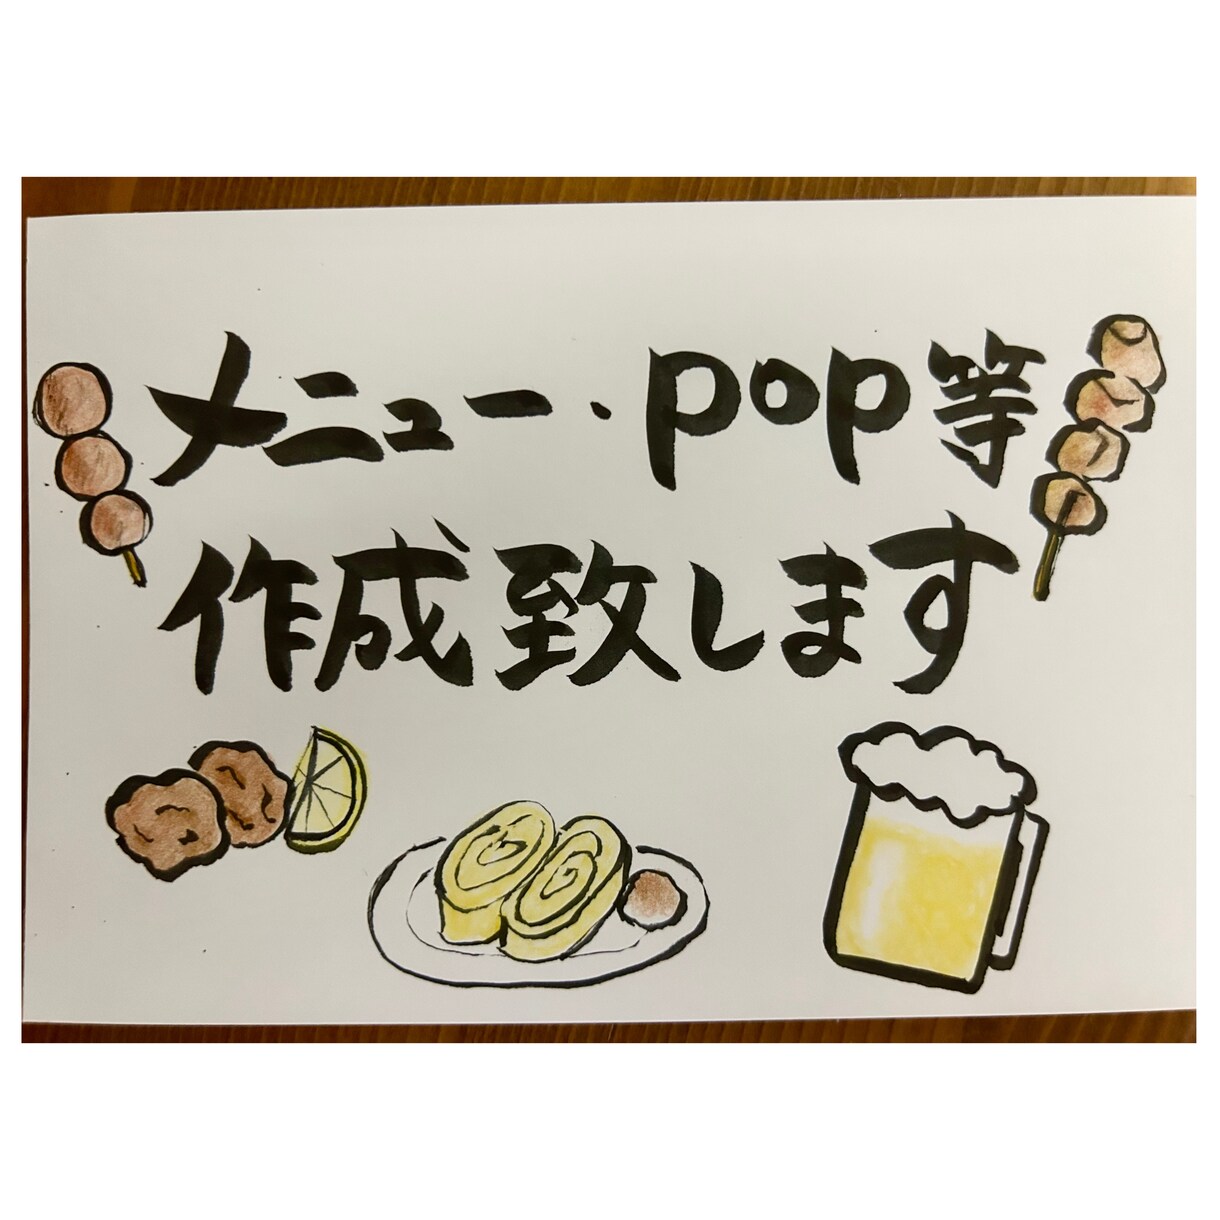 メニュー・pop等
作成致します